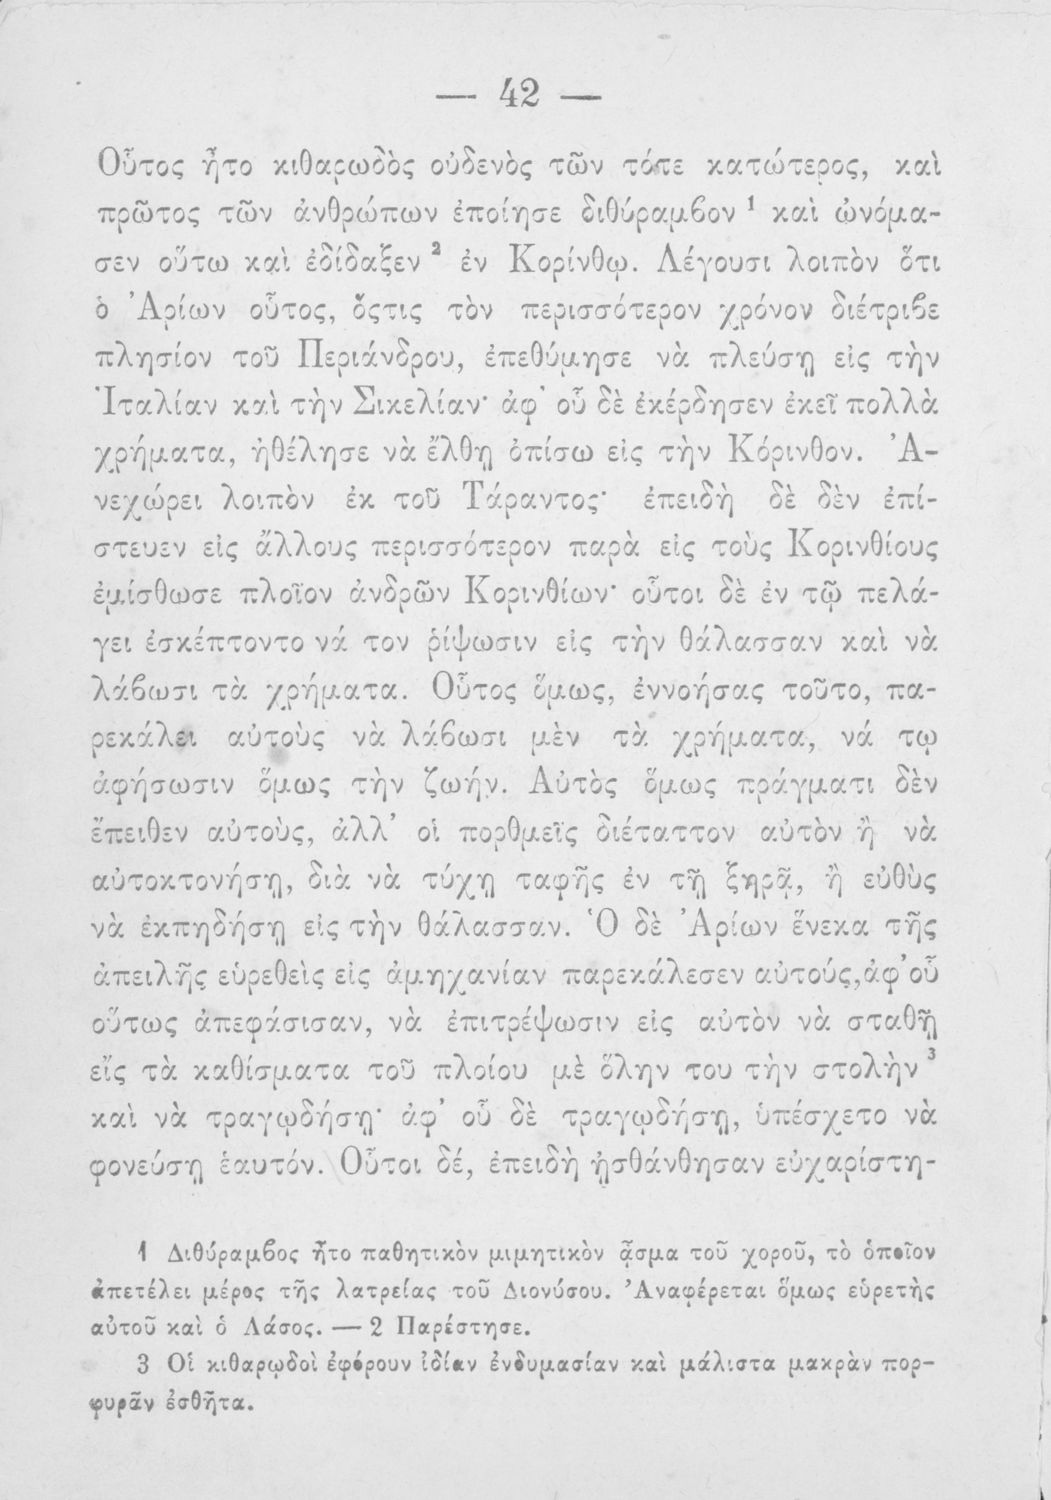 — 42 —
Οὗτος ἦτο κιθαρωδὸς οὐδενὸς τῶν τότε κατώτερος, καὶ
πρῶτος τῶν ἀνθρώπων ἐποίησε διθύραμβον ¹ καὶ ὠνόμα-
σεν οὕτω καὶ ἐδίδαξεν ² ἐν Κορίνθῳ. Λέγουσι λοιπὸν ὅτι
ὁ Ἀρίων οὗτος, ὅςτις τὸν περισσότερον χρόνον διέτριβε
πλησίον τοῦ Περιάνδρου, ἐπεθύμησε νὰ πλεύσῃ εἰς τὴν
Ἰταλίαν καὶ τὴν Σικελίαν· ἀφ' οὗ δὲ ἐκέρδησεν ἐκεῖ πολλὰ
χρήματα, ἠθέλησε νὰ ἔλθῃ ὀπίσω εἰς τὴν Κόρινθον. Ἀ-
νεχώρει λοιπὸν ἐκ τοῦ Τάραντος· ἐπειδὴ δὲ δὲν ἐπί-
στευεν εἰς ἄλλους περισσότερον παρὰ εἰς τοὺς Κορινθίους
ἐμίσθωσε πλοῖον ἀνδρῶν Κορινθίων· οὗτοι δὲ ἐν τῷ πελά-
γει ἐσκέπτοντο νά τον ῥίψωσιν εἰς τὴν θάλασσαν καὶ νὰ
λάβωσι τὰ χρήματα. Οὗτος ὅμως, ἐννοήσας τοῦτο, πα-
ρεκάλει αὐτοὺς νὰ λάβωσι μὲν τὰ χρήματα, νά τῳ
ἀφήσωσιν ὅμως τὴν ζωήν. Αὐτὸς ὅμως πράγματι δὲν
ἔπειθεν αὐτοὺς, ἀλλ' οἱ πορθμεῖς διέταττον αὐτὸν ἢ νὰ
αὐτοκτονήσῃ, διὰ νὰ τύχῃ ταφῆς ἐν τῇ ξηρᾷ, ἢ εὐθὺς
νὰ ἐκπηδήσῃ εἰς τὴν θάλασσαν. Ὁ δὲ Ἀρίων ἕνεκα τῆς
ἀπειλῆς εὑρεθεὶς εἰς ἀμηχανίαν παρεκάλεσεν αὐτούς, ἀφ' οὗ
οὕτως ἀπεφάσισαν, νὰ ἐπιτρέψωσιν εἰς αὐτὸν νὰ σταθῇ
εἴς τὰ καθίσματα τοῦ πλοίου μὲ ὅλην του τὴν στολὴν ³
καὶ νὰ τραγῳδήσῃ· ἀφ' οὗ δὲ τραγῳδήσῃ, ὑπέσχετο νὰ
φονεύσῃ ἑαυτόν. Οὗτοι δέ, ἐπειδὴ ᾐσθάνθησαν εὐχαρίστη-
1 Διθύραμβος ἦτο παθητικὸν μιμητικὸν ᾆσμα τοῦ χοροῦ, τὸ ὁποῖον
ἀπετέλει μέρος τῆς λατρείας τοῦ Διονύσου. Ἀναφέρεται ὅμως εὑρετὴς
αὐτοῦ καὶ ὁ Λάσος. — 2 Παρέστησε.
3 Οἱ κιθαρῳδοὶ ἐφόρουν ἰδίαν ἐνδυμασίαν καὶ μάλιστα μακρὰν πορ-
φυρᾶν ἐσθῆτα.